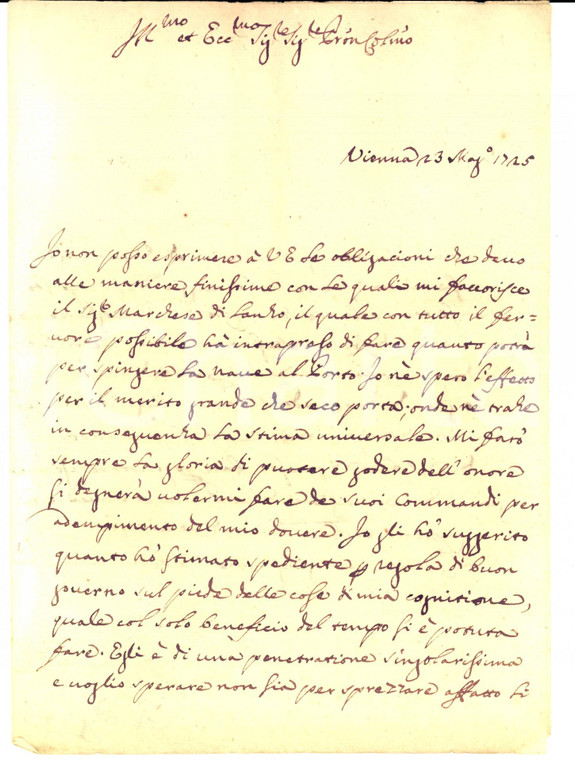 Ill.mo et Ecc.mo Sig.re Sig.re Pròn Col.mo
Vienna 23 Mag.o 1725
Io non posso esprimere à V E le obligazioni che devo
alle maniere finissime con le quali mi favorisce
il Sig.re Marchese di Lanzo, il quale con tutto il fer=
vore possibile hà intrapreso di fare quanto potrà
per spingere la nave al Porto. Io nè spero l'effetto
per il merito grande che seco porta, onde nè trahe
in conseguenza la stima universale. Mi farò
sempre la gloria di puotere godere dell'onore
si degnerà volermi fare de suoi Commandi per
adempimento del mio dovere. Io gli hò suggerito
quanto hò stimato spediente p regola di buon
governo sul piede delle cose di mia cognitione,
quale col solo beneficio del tempo si è potuta
fare. Egli è di una penetratione singolarissima
e voglio sperare non sia per sprezzare affatto li